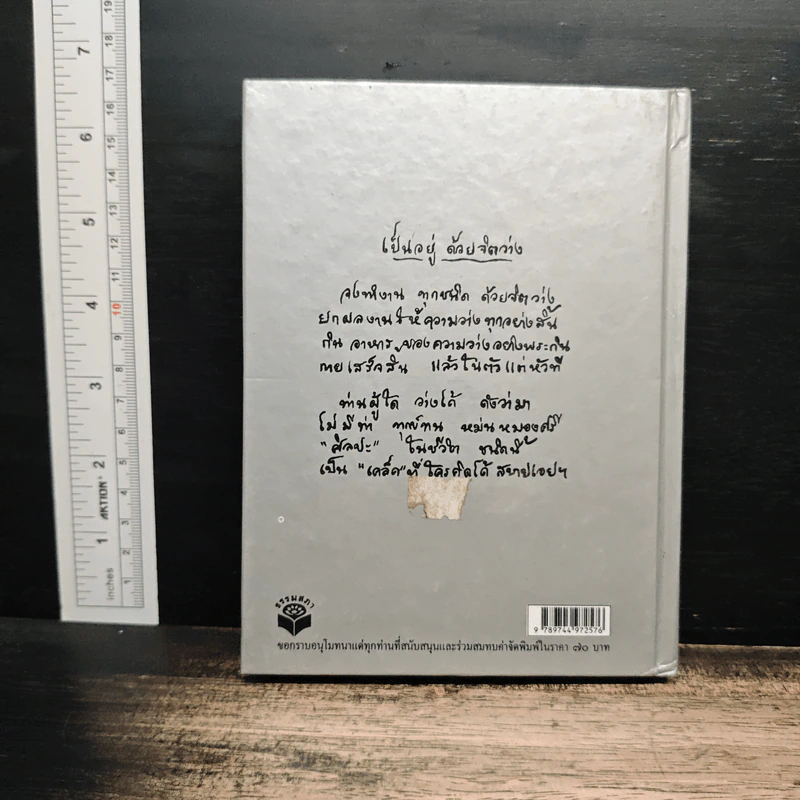 เป็นอยู่ ด้วยจิตว่าง
จงทำงาน ทุกชนิด ด้วยจิตว่าง
ยกผลงานให้ความว่างทุกอย่างสิ้น
กินอาหารของความว่างอย่างพระกิน
ตายเสร็จสิ้น แล้วในตัวแต่หัวที
ท่านผู้ใด ว่างได้ ดังว่ามา
ไม่มีท่า ทุกข์ทน หม่นหมองศรี
"ศิลปะ" ในชีวิต ชนิดนี้
เป็น "เคล็ด" ที่ใครคิดได้ สบายเอยฯ
ธรรมสภา
9 789744 972576
ขอกราบอนุโมทนาแด่ทุกท่านที่สนับสนุนและร่วมสมทบค่าจัดพิมพ์ในราคา ๗๐ บาท
7
6
5
4
3
2
1
inches
AKTION
19
18
17
16
15
14
13
12
11
10
9
8
7
6
5
4
3
2
1